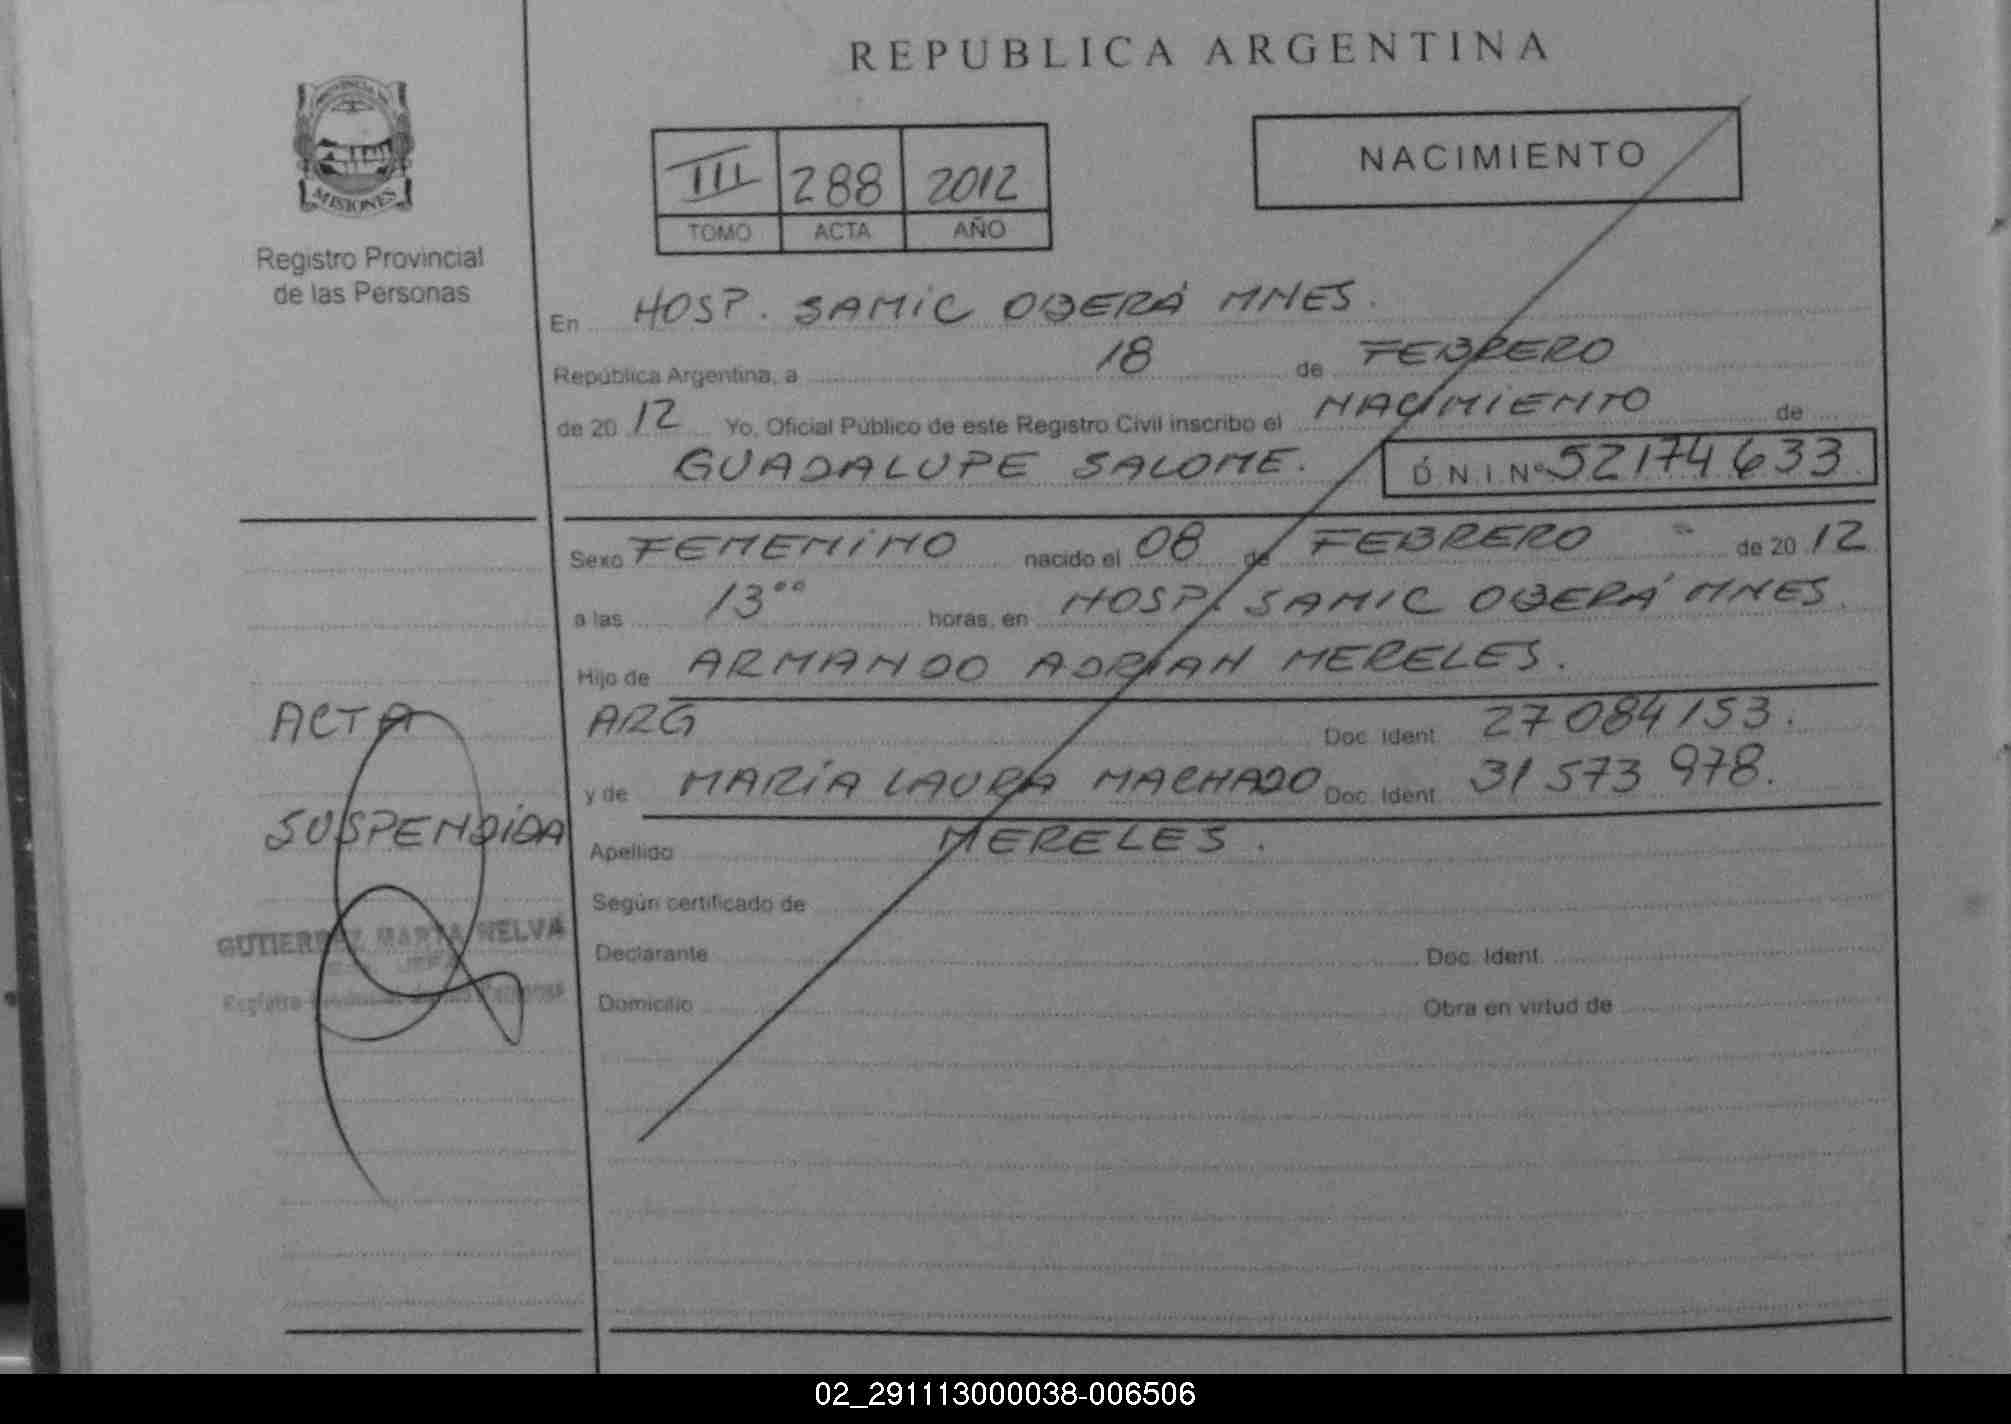 REPUBLICA ARGENTINA
NACIMIENTO
III 288 2012
TOMO ACTA AÑO
MISIONES
Registro Provincial
de las Personas
En HOSP. SAMIC OBERÁ MNES.
República Argentina, a 18 de FEBRERO
de 20 12 Yo, Oficial Público de este Registro Civil inscribo el NACIMIENTO de
GUADALUPE SALOME. D.N.I. Nº 52174633
Sexo FEMENINO nacido el 08 de FEBRERO de 20 12
a las 13°° horas, en HOSP. SAMIC OBERÁ MNES.
Hijo de ARMANDO ADRIAN MERELES.
ARG Doc. Ident. 27084153.
y de MARÍA LAURA MACHADO Doc. Ident. 31573978.
Apellido MERELES.
Según certificado de
Declarante Doc. Ident.
Domicilio Obra en virtud de
ACTA
SUSPENDIDA
GUTIERREZ MARTA NELVA
JEFA
Registro Provincial de las Personas
02_291113000038-006506